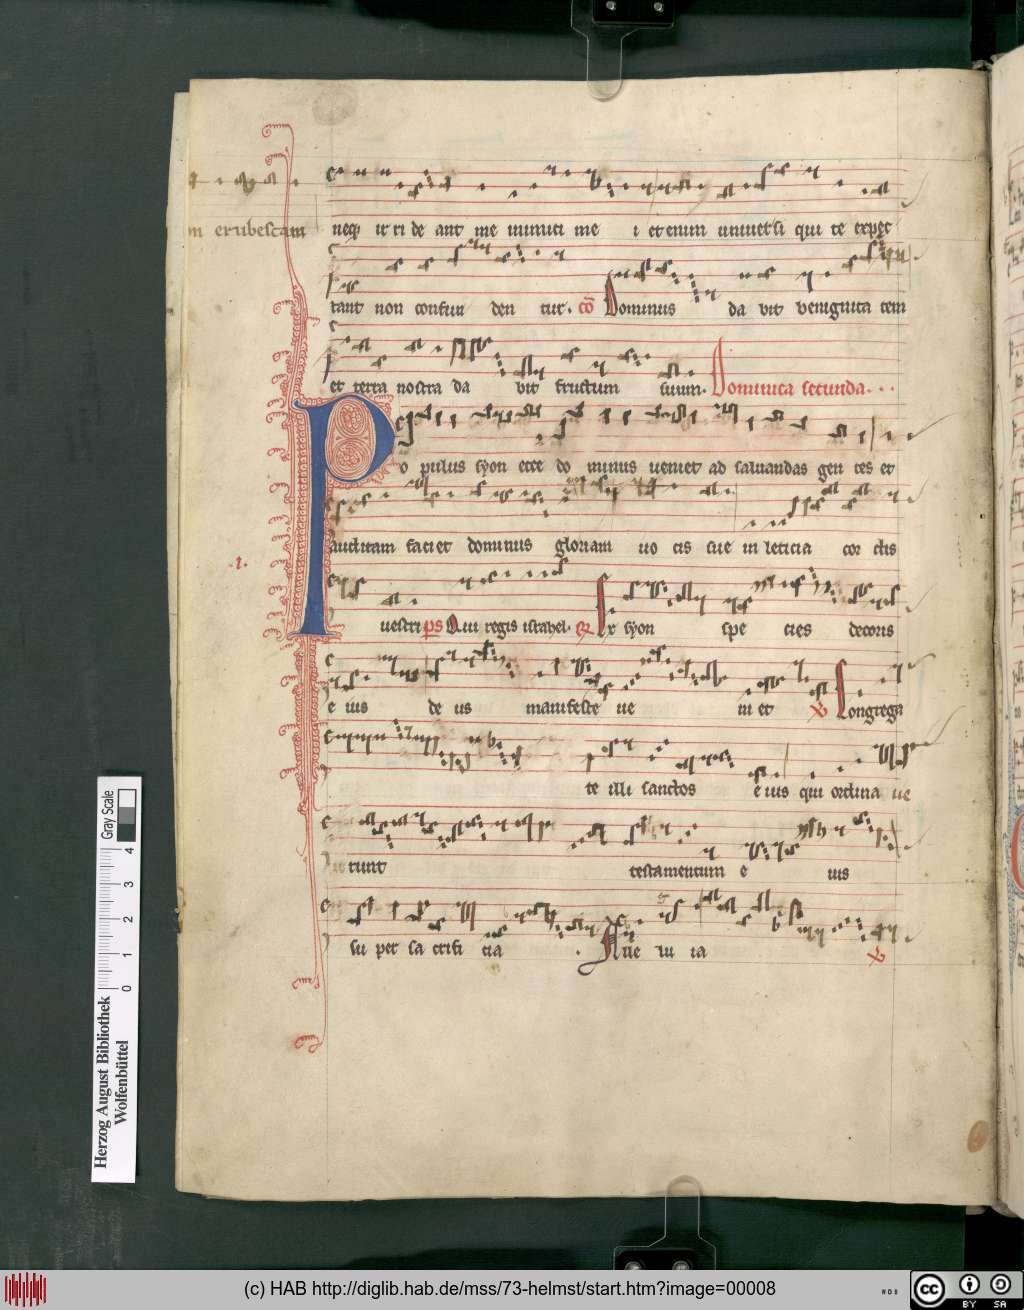 m erubescam neqꝫ ir ri de ant me inimici me i et enim universi qui te expec
tant non confun den tur. cō Dominus da bit benignita tem
et terra nostra da bit fructum suum. Dominica secunda. . .
Po pulus syon ecce do minus veniet ad salvandas gen tes et
auditam faciet dominus gloriam vo cis sue in leticia cor dis
.i.
vestri ps Qui regis israhel. Ex syon spe cies decoris
e ius de us manifeste ve ni et Congrega
te illi sanctos e ius qui ordina ve
runt testamentum e ius
su per sa crifi cia . Alle lu ia
Gray Scale
4 3 2 1 0
Herzog August Bibliothek
Wolfenbüttel
(c) HAB http://diglib.hab.de/mss/73-helmst/start.htm?image=00008
cc BY SA